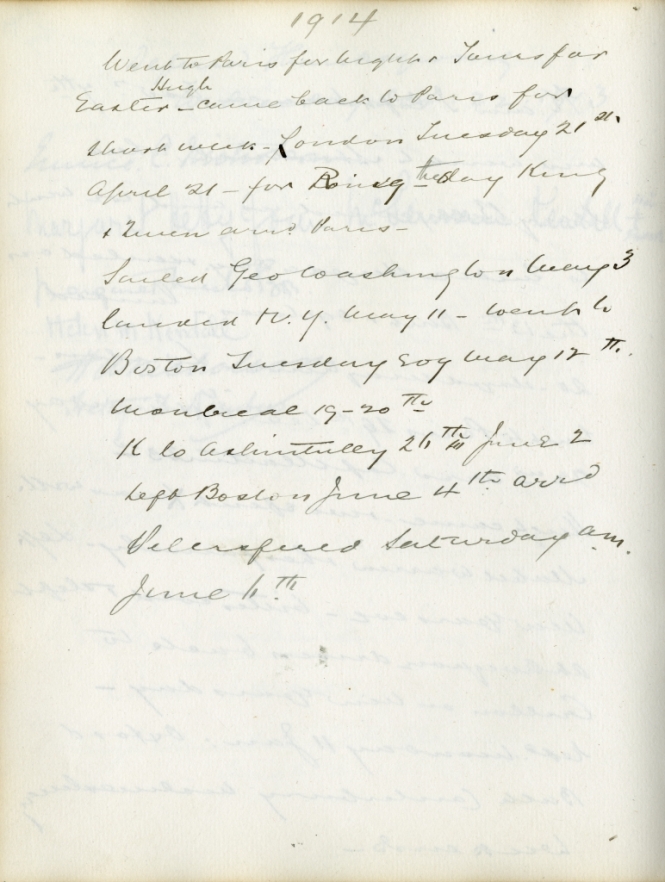 1914
Went to Paris for night & Tours for
Hugh
Easter - came back to Paris for
short week - London Tuesday 21st
April 21 - for the day King
& Queen arrd Paris -
Sailed Geo Washington May 3
landed N.Y. May 11 - went to
Boston Tuesday May 12th.
Montreal 19-20th
K to Ashintully 26th June 2
Left Boston June 4th arrd
Saturday a.m.
June 6th